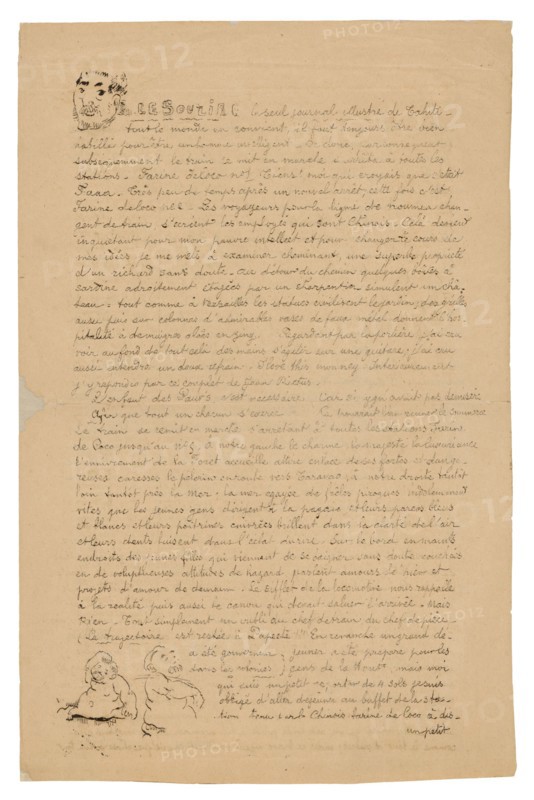 LE SOURIRE le seul journal illustré de Tahiti
tout le monde en convient, il faut toujours être bien
habillé pour être un homme
le train se met en marche s'arrête à toutes les
stations. Farine de Coco n°1 Tiens! moi qui croyais que c'était
Paaa. Très peu de temps après un nouvel arrêt, cette fois c'est
Farine de coco n°2. Les voyageurs pour la ligne de changent
de train, s'écrient les employés qui sont Chinois. Cela devient
inquiétant pour mon pauvre intellect et pour changer le cours de
mes idées, je me mets à examiner cheminant, une superbe propriété
d'un richard sans doute. Au détour du chemin quelques boîtes à
sardine adroitement étagées par un charpentier simulent un châ-
teau. tout comme à Versailles les statues le jardin; des grilles
aussi puis sur colonnes d'admirables vases de faux métal donnent l'hos-
pitalité à de maigres aloès en zinc. Regardant par la portière j'ai cru
voir au fond de tout cela des mains s'agiter sur une guitare; j'ai cru
aussi entendre un doux refrain. I love this money. Intérieurement
j'y répondis par ce couplet de Jean Rictus.
L'enfant des Pauv's c'est nécessaire. Car si yen avait pas de misère
Afin que tout un chacun s'exerce.
Le train se remit en marche s'arrêtant à toutes les stations Farine
de Coco jusqu'au n°9. À notre gauche le charme la luxuriance
l'enivrement de la Forêt accueille attire enlace de ses fortes et dange-
reuses caresses le pèlerin en route vers Taravao; à notre droite tantôt
loin tantôt près la Mer. la mer égayée de frêles pirogues indolemment
vites que les jeunes gens dirigent à la pagaie et leurs pareos bleus
et blancs et leurs poitrines cuivrées brillent dans la clarté de l'air
et leurs dents luisent dans l'éclat du rire. Sur le bord en maints
endroits des jeunes filles qui viennent de se baigner sans doute couchées
en de voluptueuses attitudes de hazard parlent amours de hier et
projets d'amour de demain. Le sifflet de la locomotive nous rappelle
à la réalité puis aussi le canon qui devait saluer l'arrivée. Mais
Rien. Tout simplement un oubli du chef de train du chef de pièce
(La trajectoire est restée à Papeete !!! En revanche un grand dé-
jeuner a été préparé pour les
gens de la Haute, mais moi
qui suis un petit
obligé d'aller déjeuner au buffet de la sta-
tion tenu par le Chinois farine de Coco à dis-
un petit
PHOTO12